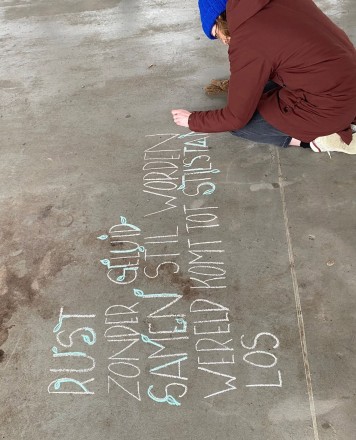 RUST
ZONDER GELUID
SAMEN STIL WORDEN
WERELD KOMT TOT STILSTAN
LOS